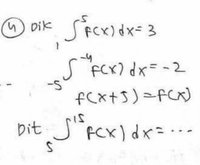 4 Dik ∫₁⁵ f(x) dx = 3
∫₋₅⁻⁴ f(x) dx = -2
f(x+5) = f(x)
Dit ∫₅¹⁵ f(x) dx = ...